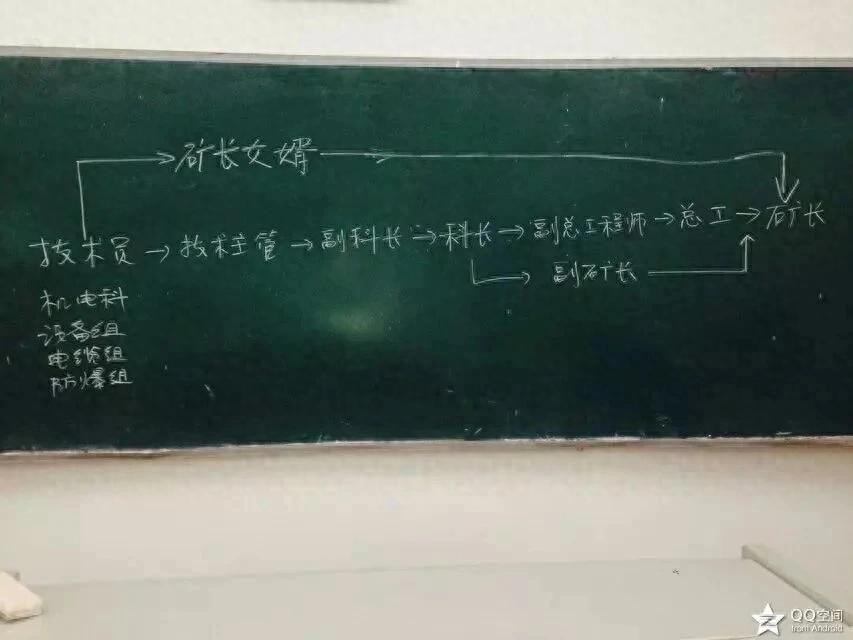 矿长女婿
技术员→技术主管→副科长→科长→副总工程师→总工→矿长
副矿长
机电科
设备组
电缆组
防爆组
QQ空间
from Android